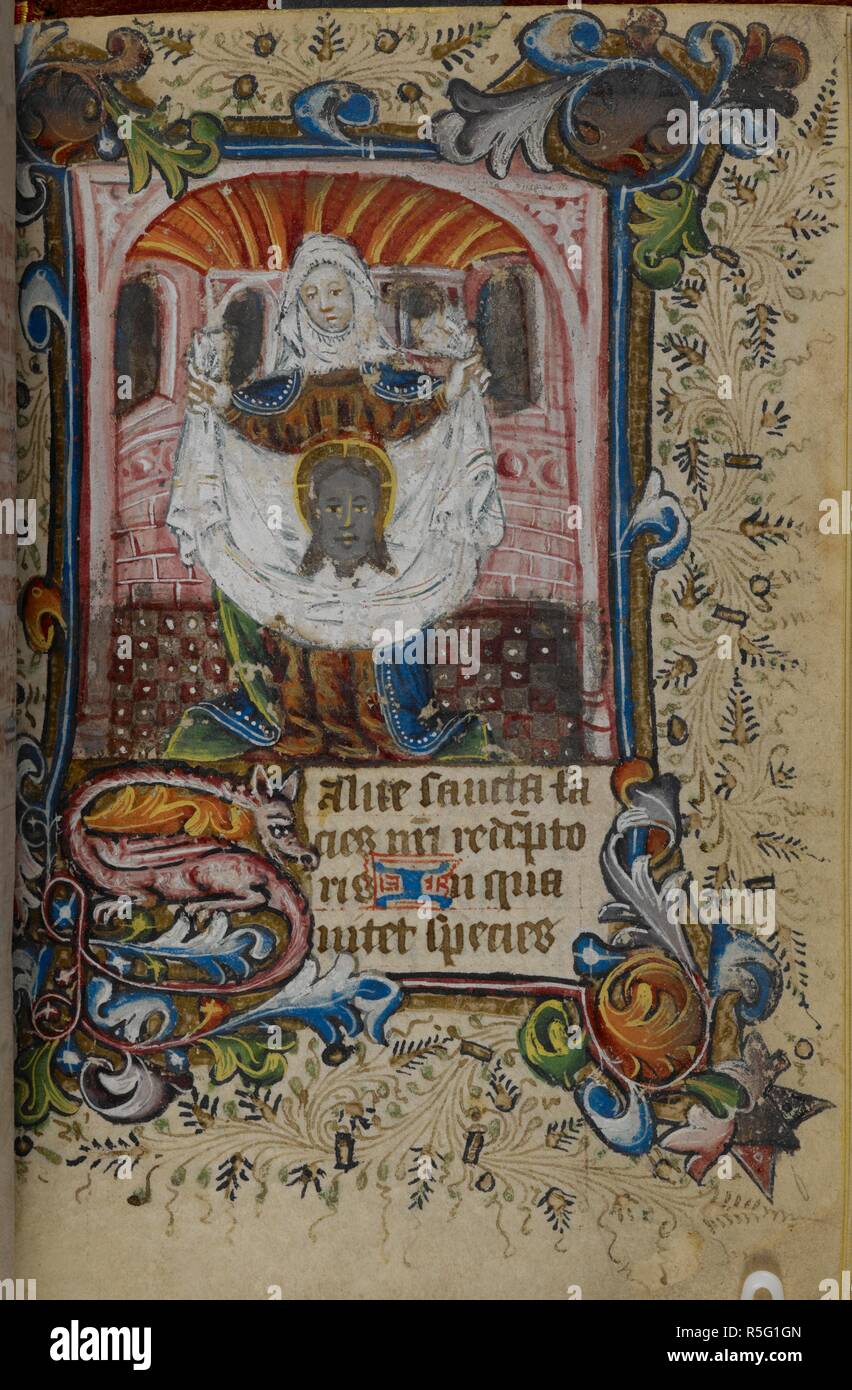 Salve sancta fa
cies nr̄i redēpto
ris In qua
nitet species
alamy
Image ID: R5G1GN
www.alamy.com